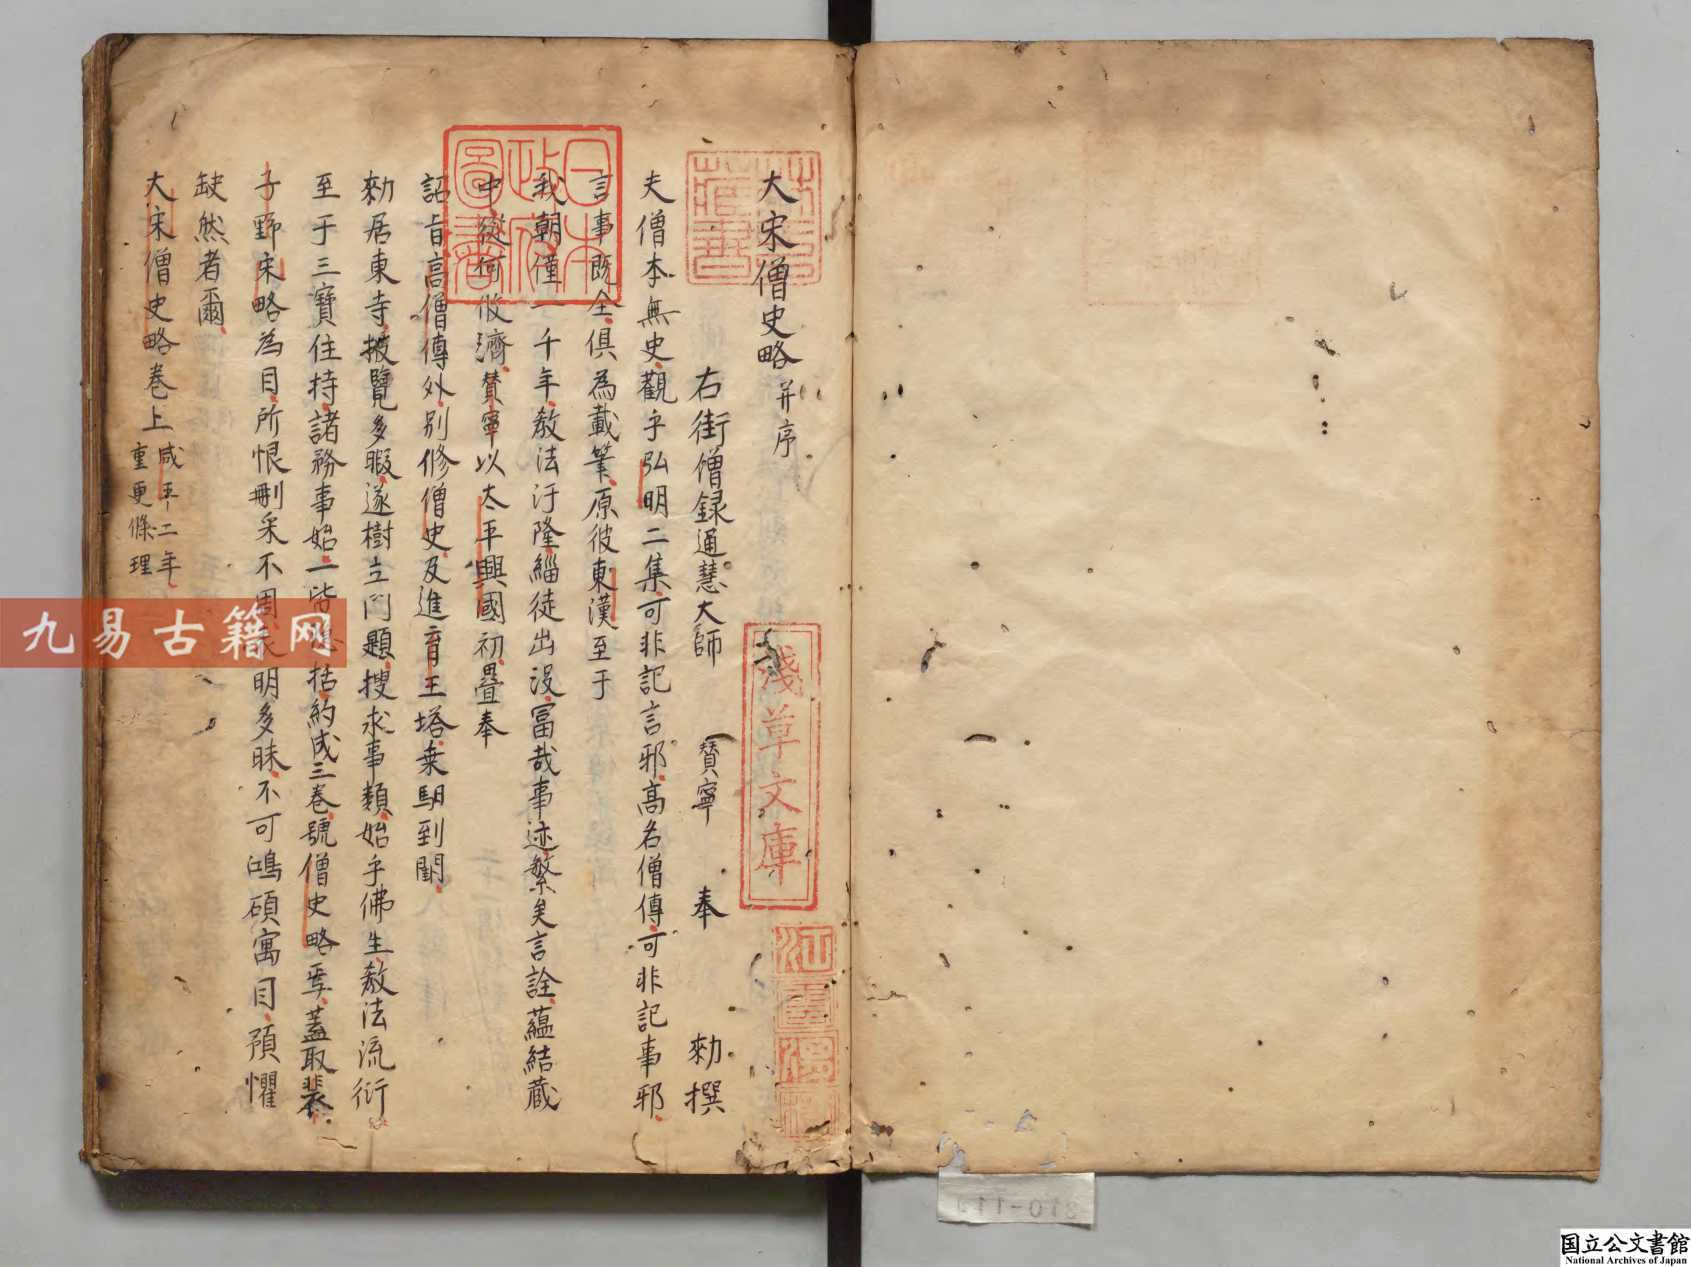 大宋僧史略并序
右街僧録通慧大師 賛寧 奉 勑撰
夫僧本無史觀乎弘明二集可非記言邪高名僧傳可非記事邪
言事既全俱為載筆原彼東漢至于
我朝僅一千年教法汙隆緇徒出没冨哉事迹繁矣言詮蘊結藏
中從何攸濟賛寧以太平興國初疊奉
詔旨高僧傳外別修僧史及進育王塔乗馹到闕
勑居東寺披覽多暇遂樹立門題搜求事類始乎佛生教法流衍
至于三寶住持諸務事始一皆括約成三卷號僧史略焉蓋取裴
子野宋略為目所恨刪采不周明多昧不可鴻碩寓目預懼
缺然者爾
大宋僧史略卷上 咸平二年
重更條理
日本
政府
圖書
淺草文庫
九易古籍网
310-11
国立公文書館
National Archives of Japan